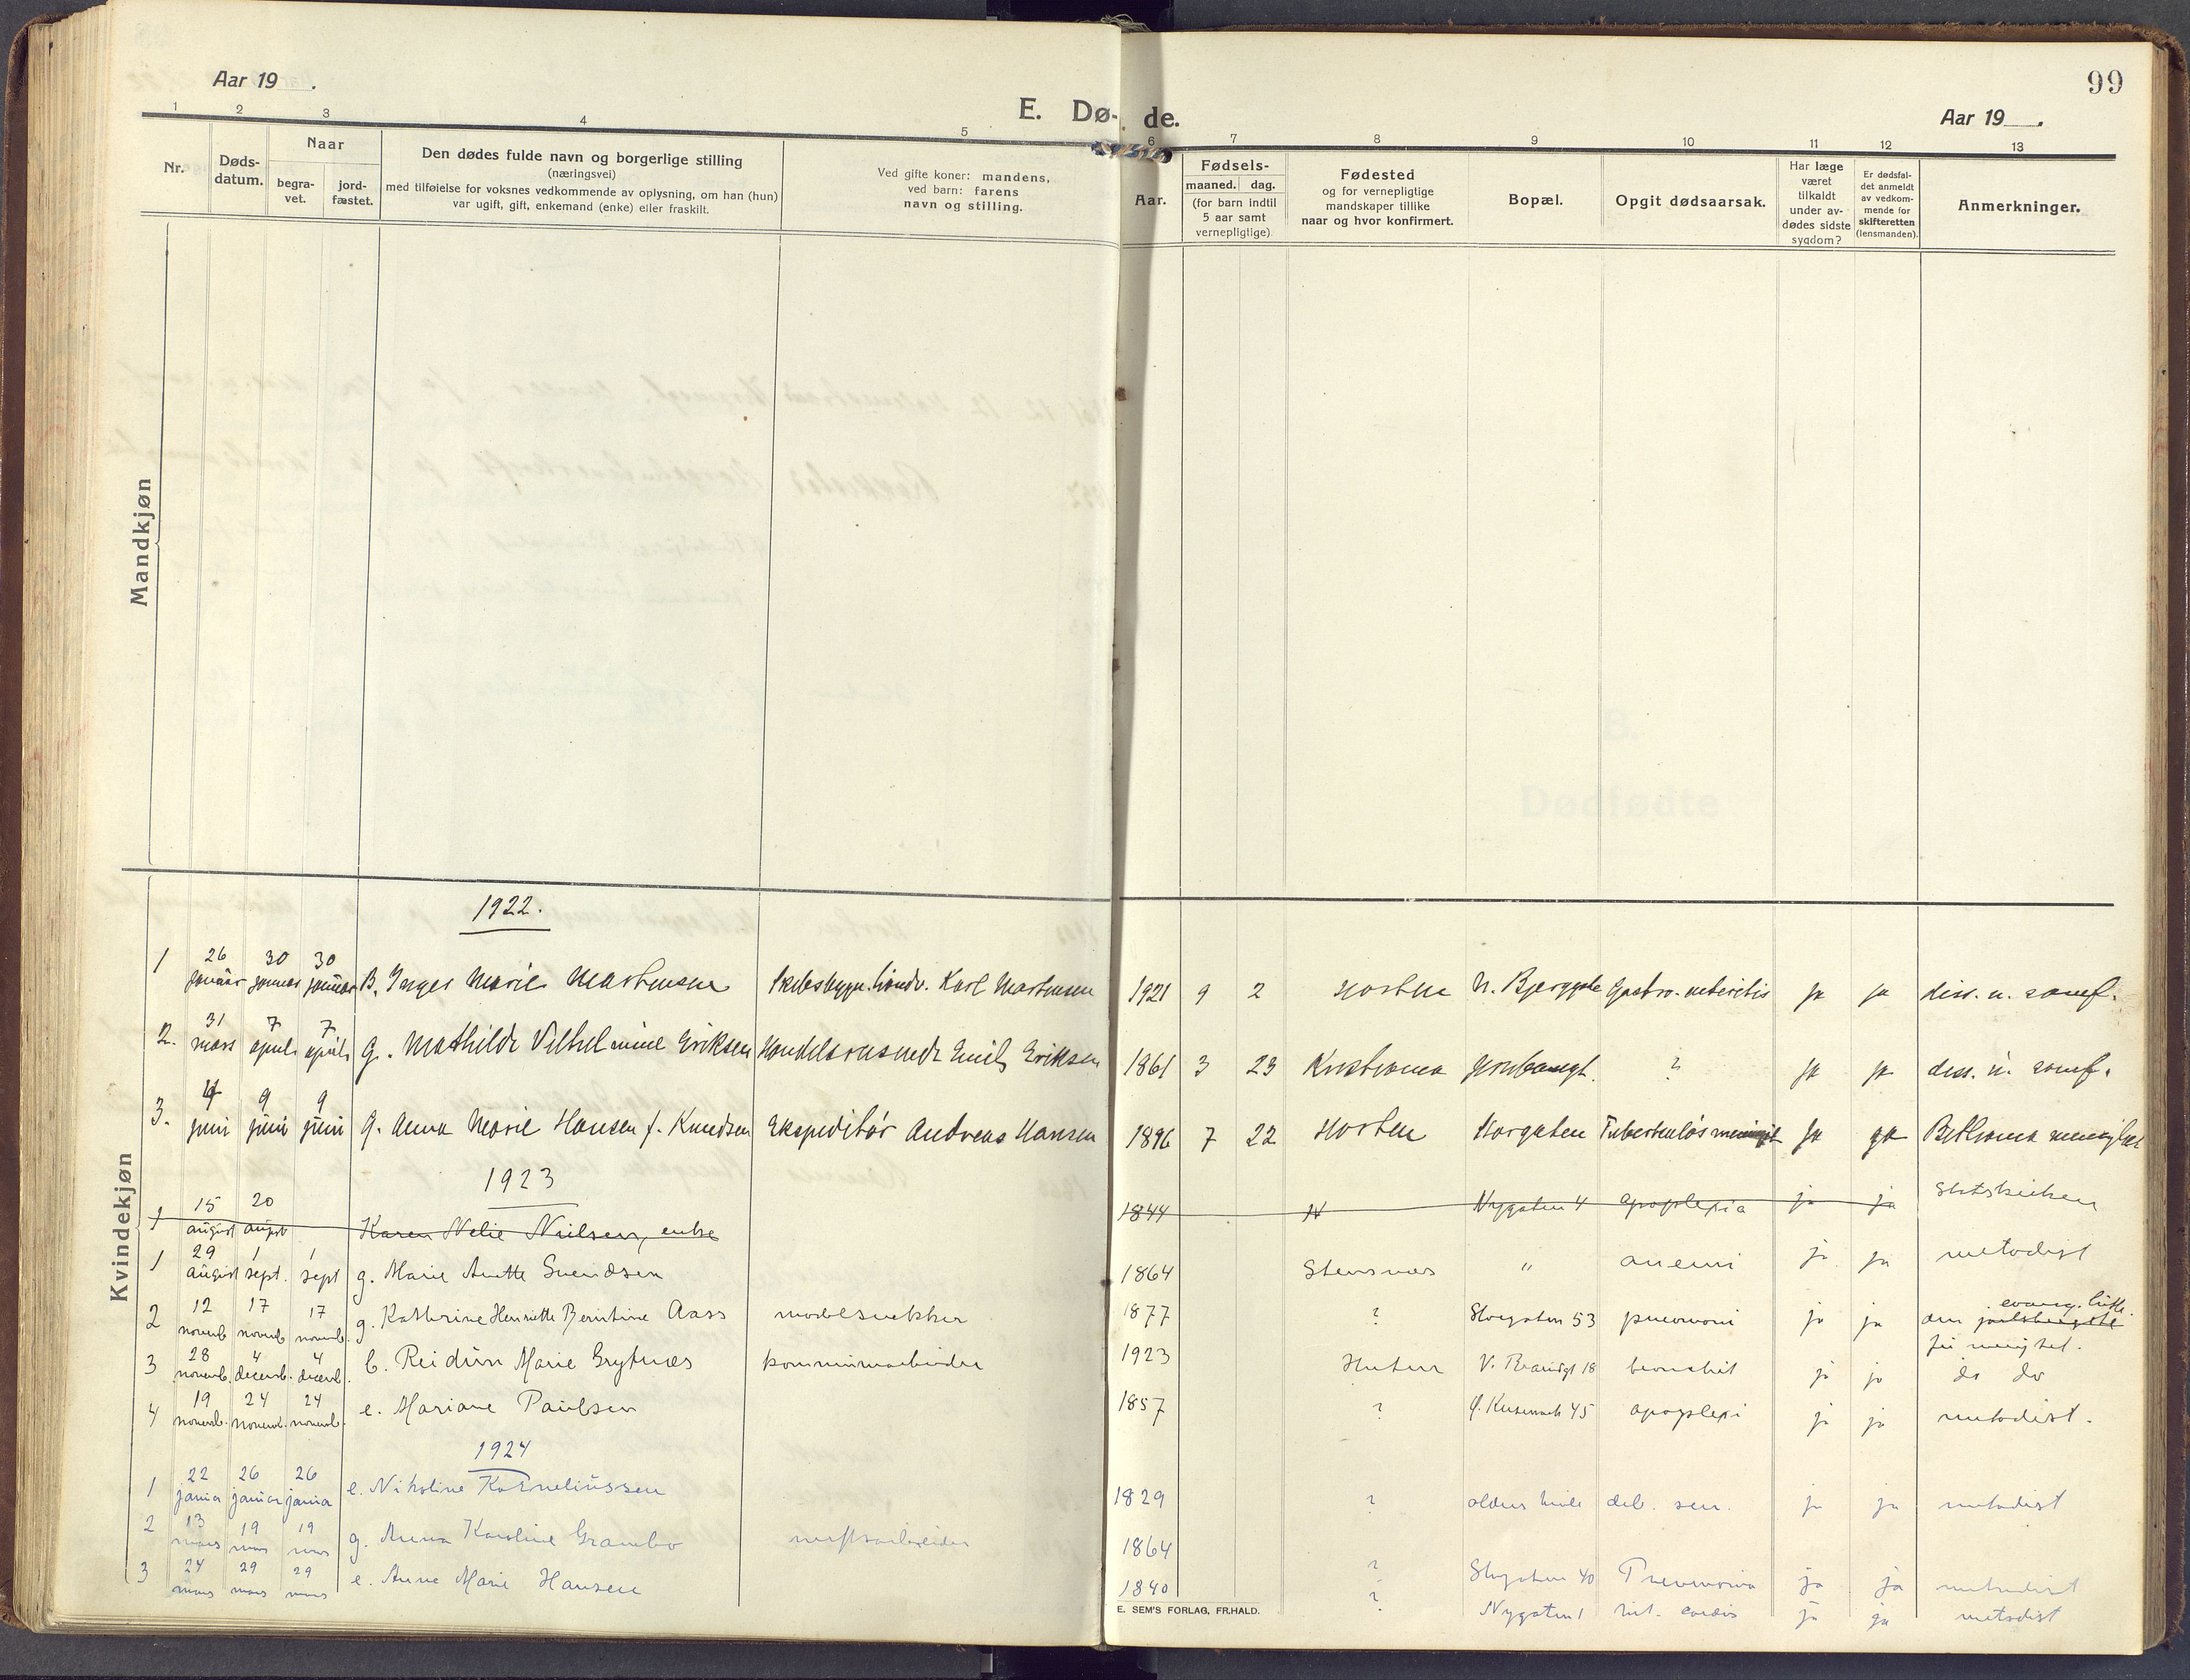 99
Aar 19 .
E. Dø- de.
Aar 19 .
1 2 3 4 5 6 7 8 9 10 11 12 13
Nr.
Døds-
datum.
Naar
begra-
vet.
jord-
fæstet.
Den dødes fulde navn og borgerlige stilling
(næringsvei)
med tilføielse for voksnes vedkommende av oplysning, om han (hun)
var ugift, gift, enkemand (enke) eller fraskilt.
Ved gifte koner: mandens,
ved barn: farens
navn og stilling.
Aar.
Fødsels-
maaned. dag.
(for barn indtil
5 aar samt
vernepligtige)
Fødested
og for vernepligtige
mandskaper tillike
naar og hvor konfirmert.
Bopæl.
Opgit dødsaarsak.
Har læge
været
tilkaldt
under av-
dødes sidste
sygdom?
Er dødsfal-
det anmeldt
av vedkom-
mende for
skifteretten
(lensmanden).
Anmerkninger.
Mandkjøn
Dødfødte
Kvindekjøn
1922.
1 26 januar 30 januar 30 januar B. Inger Marie Martensen Karl Martensen 1921 9 2 Horten ja ja diss. u. samf.
2. 31 mars 7 april 7 april g. Mathilde Vilhelmine Eriksen Handelsreisende Emil Eriksen 1861 3 23 Kristiania ? ja ja diss. u. samf.
3. 4 juni 9 juni 9 juni g. Anna Marie Hansen f. Knudsen Ekspeditør Andreas Hansen 1896 7 22 Horten Storgaten Tuberkuløs meningit ja ja Bethania menighet
1923
1 15 august 20 august Karen Nilsen, enke 1844 H Nygaten 4 apoplexia ja ja Statskirken
1 29 august 1 sept. 1 sept g. Marie Anette Svendsen 1864 " anemi ja ja metodist
2 12 novemb 17 novemb 17 novemb. g. Kathrine Henriette Berntine Aass modelsnekker 1877 ? Storgaten 53 pneumoni ja ja den evang. luth.
fri menighet.
3 28 novemb. 4 decemb. 4 decemb. b. Reidun Marie Grytnes kommunearbeider 1923 Horten V. Brandgt 18 bronchit ja ja do do
4 19 novemb. 24 novemb. 24 novemb. e. Mariane Paulsen 1857 ? 45 apoplexi ja ja metodist.
1924
1 22 januar 26 januar 26 januar e. Nikoline Korneliussen 1829 ? deb. sen. ja ja metodist
2 13 mars 19 mars 19 mars g. Anna Karoline Grambo verftsarbeider 1864 ? Storgaten 40 Pneumonia ja ja metodist
3 24 mars 29 mars 29 mars e. Anne Marie Hansen 1840 ? Nygaten 1 cordis ja ja metodist
E. SEM'S FORLAG, FR.HALD.